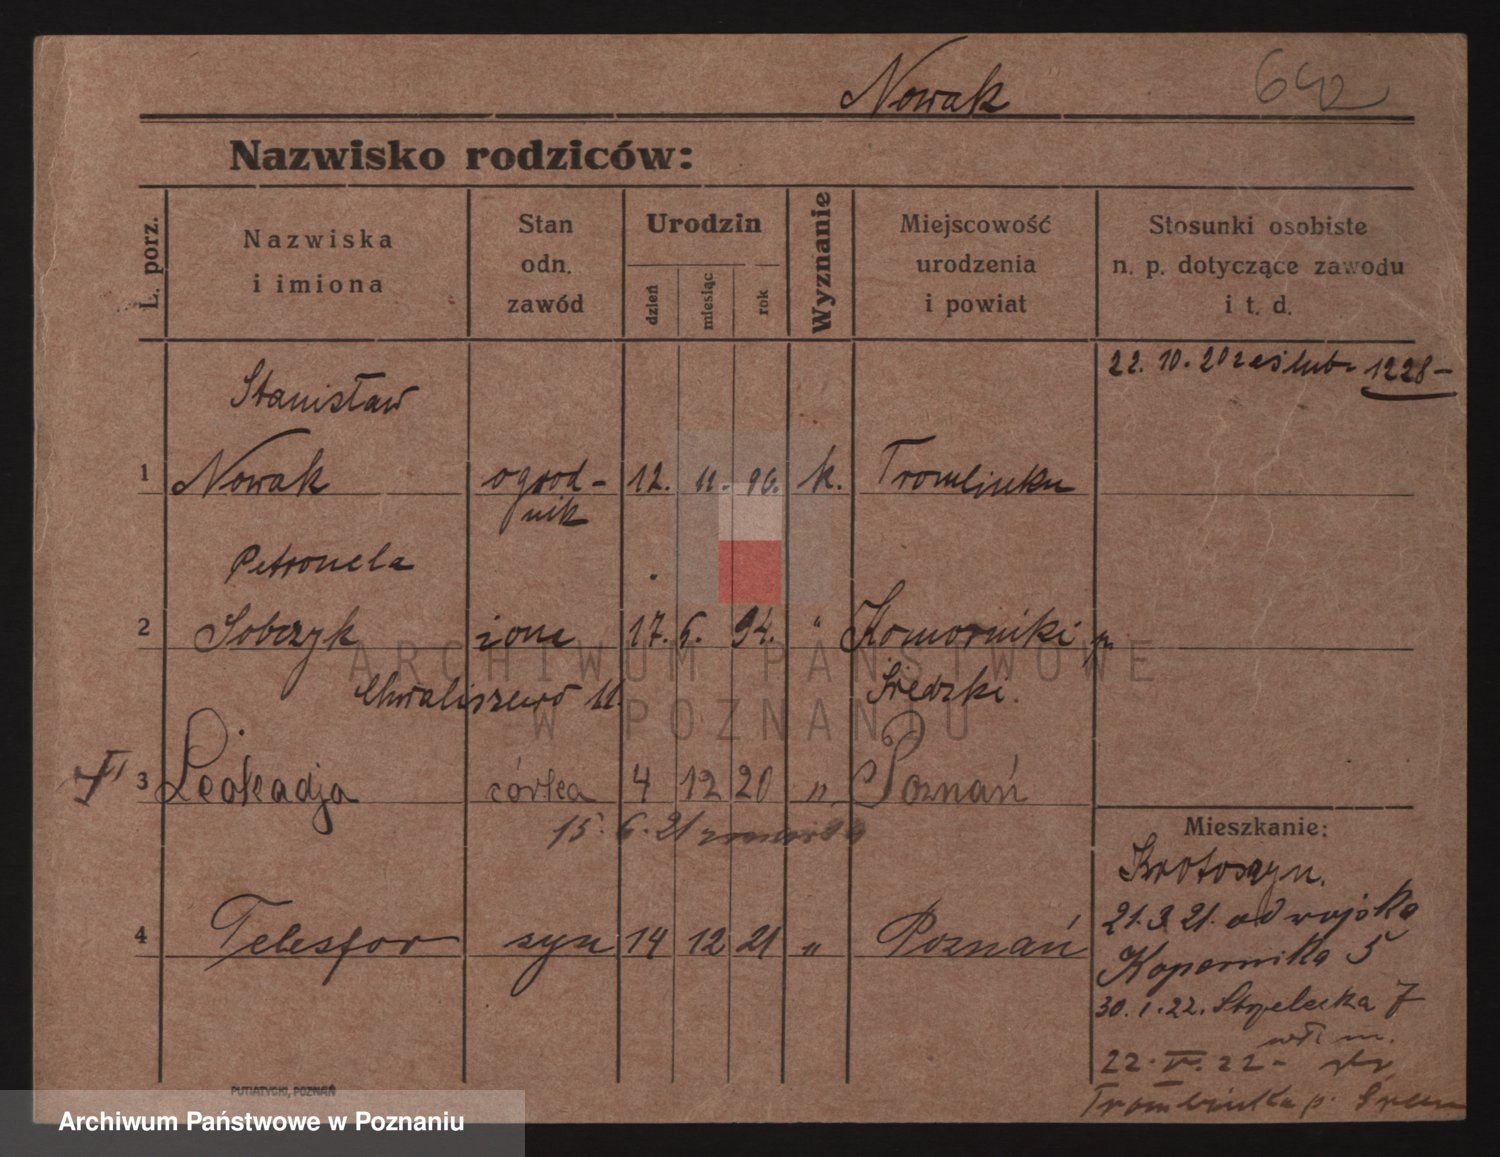 Nowak 642
Nazwisko rodziców:
L. porz.
Nazwiska
i imiona
Stan
odn.
zawód
Urodzin
dzień
miesiąc
rok
Wyznanie
Miejscowość
urodzenia
i powiat
Stosunki osobiste
n. p. dotyczące zawodu
i t. d.
22. 10. 20 zaślub. 1228 -
Stanisław
1 Nowak ogrod- 12. 11. 96. k. Trombinku
nik
Petronela
2 Sobczyk żona 17. 6. 94. " Komorniki p.
Chwaliszewo 11. Średzki.
3 Leokadja córka 4 12 20 " Poznań
15. 6. 21 zmarła
Mieszkanie:
Krotoszyn.
21. 3. 21. od wojska
4 Telesfor syn 14 12 21 " Poznań
Kopernika 5
30. 1. 22. Strzelecka 7
22. IV. 22 -
Trombinka p. Śrem
PUTIATYCKI, POZNAŃ
ARCHIWUM PAŃSTWOWE
W POZNANIU
Archiwum Państwowe w Poznaniu